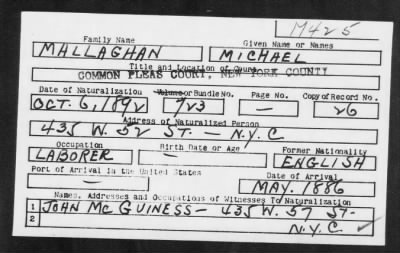 M425
Family Name Given Name or Names
MALLAGHAN MICHAEL
Title and Location of Court
COMMON PLEAS COURT, NEW YORK COUNTY
Date of Naturalization Volume or Bundle No. Page No. Copy of Record No.
OCT. 6, 1892 723 — 26
Address of Naturalized Person
435 W. 52 ST. — N.Y.C
Occupation Birth Date or Age Former Nationality
LABORER — ENGLISH
Port of Arrival in the United States Date of Arrival
— MAY. 1886
Names, Addresses and Occupations of Witnesses To Naturalization
1 JOHN MC GUINESS — 435 W. 57 ST.
2 N.Y.C